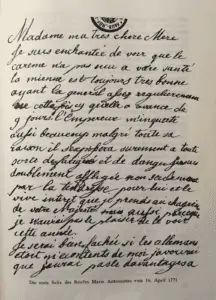 Madame ma tres chere Mere
Je suis enchantée de voir que le
careme n'a pas nui a votre santé
la mienne est toujours tres bonne
ayant la general assez regulierement
cette fois cy
9 jours l'Empereur m'inquiete
aussi beaucoup malgré toute sa
raison il s'exposera surement a toute
sorte de fatigues et de danger je suis
doublement affligée non seulement
par la tendresse pour lui et le
vive interet que je prends au chagrin
de votre majesté mais
je n'aurai pas le plaisir de le voir
cette année.
Je serai bien fachée si les allemans
etoit mécontents de moi j'avouerai
que j'aurai pas de davantages a
Die erste Seite des Briefes Marie Antoinettes vom 16. April